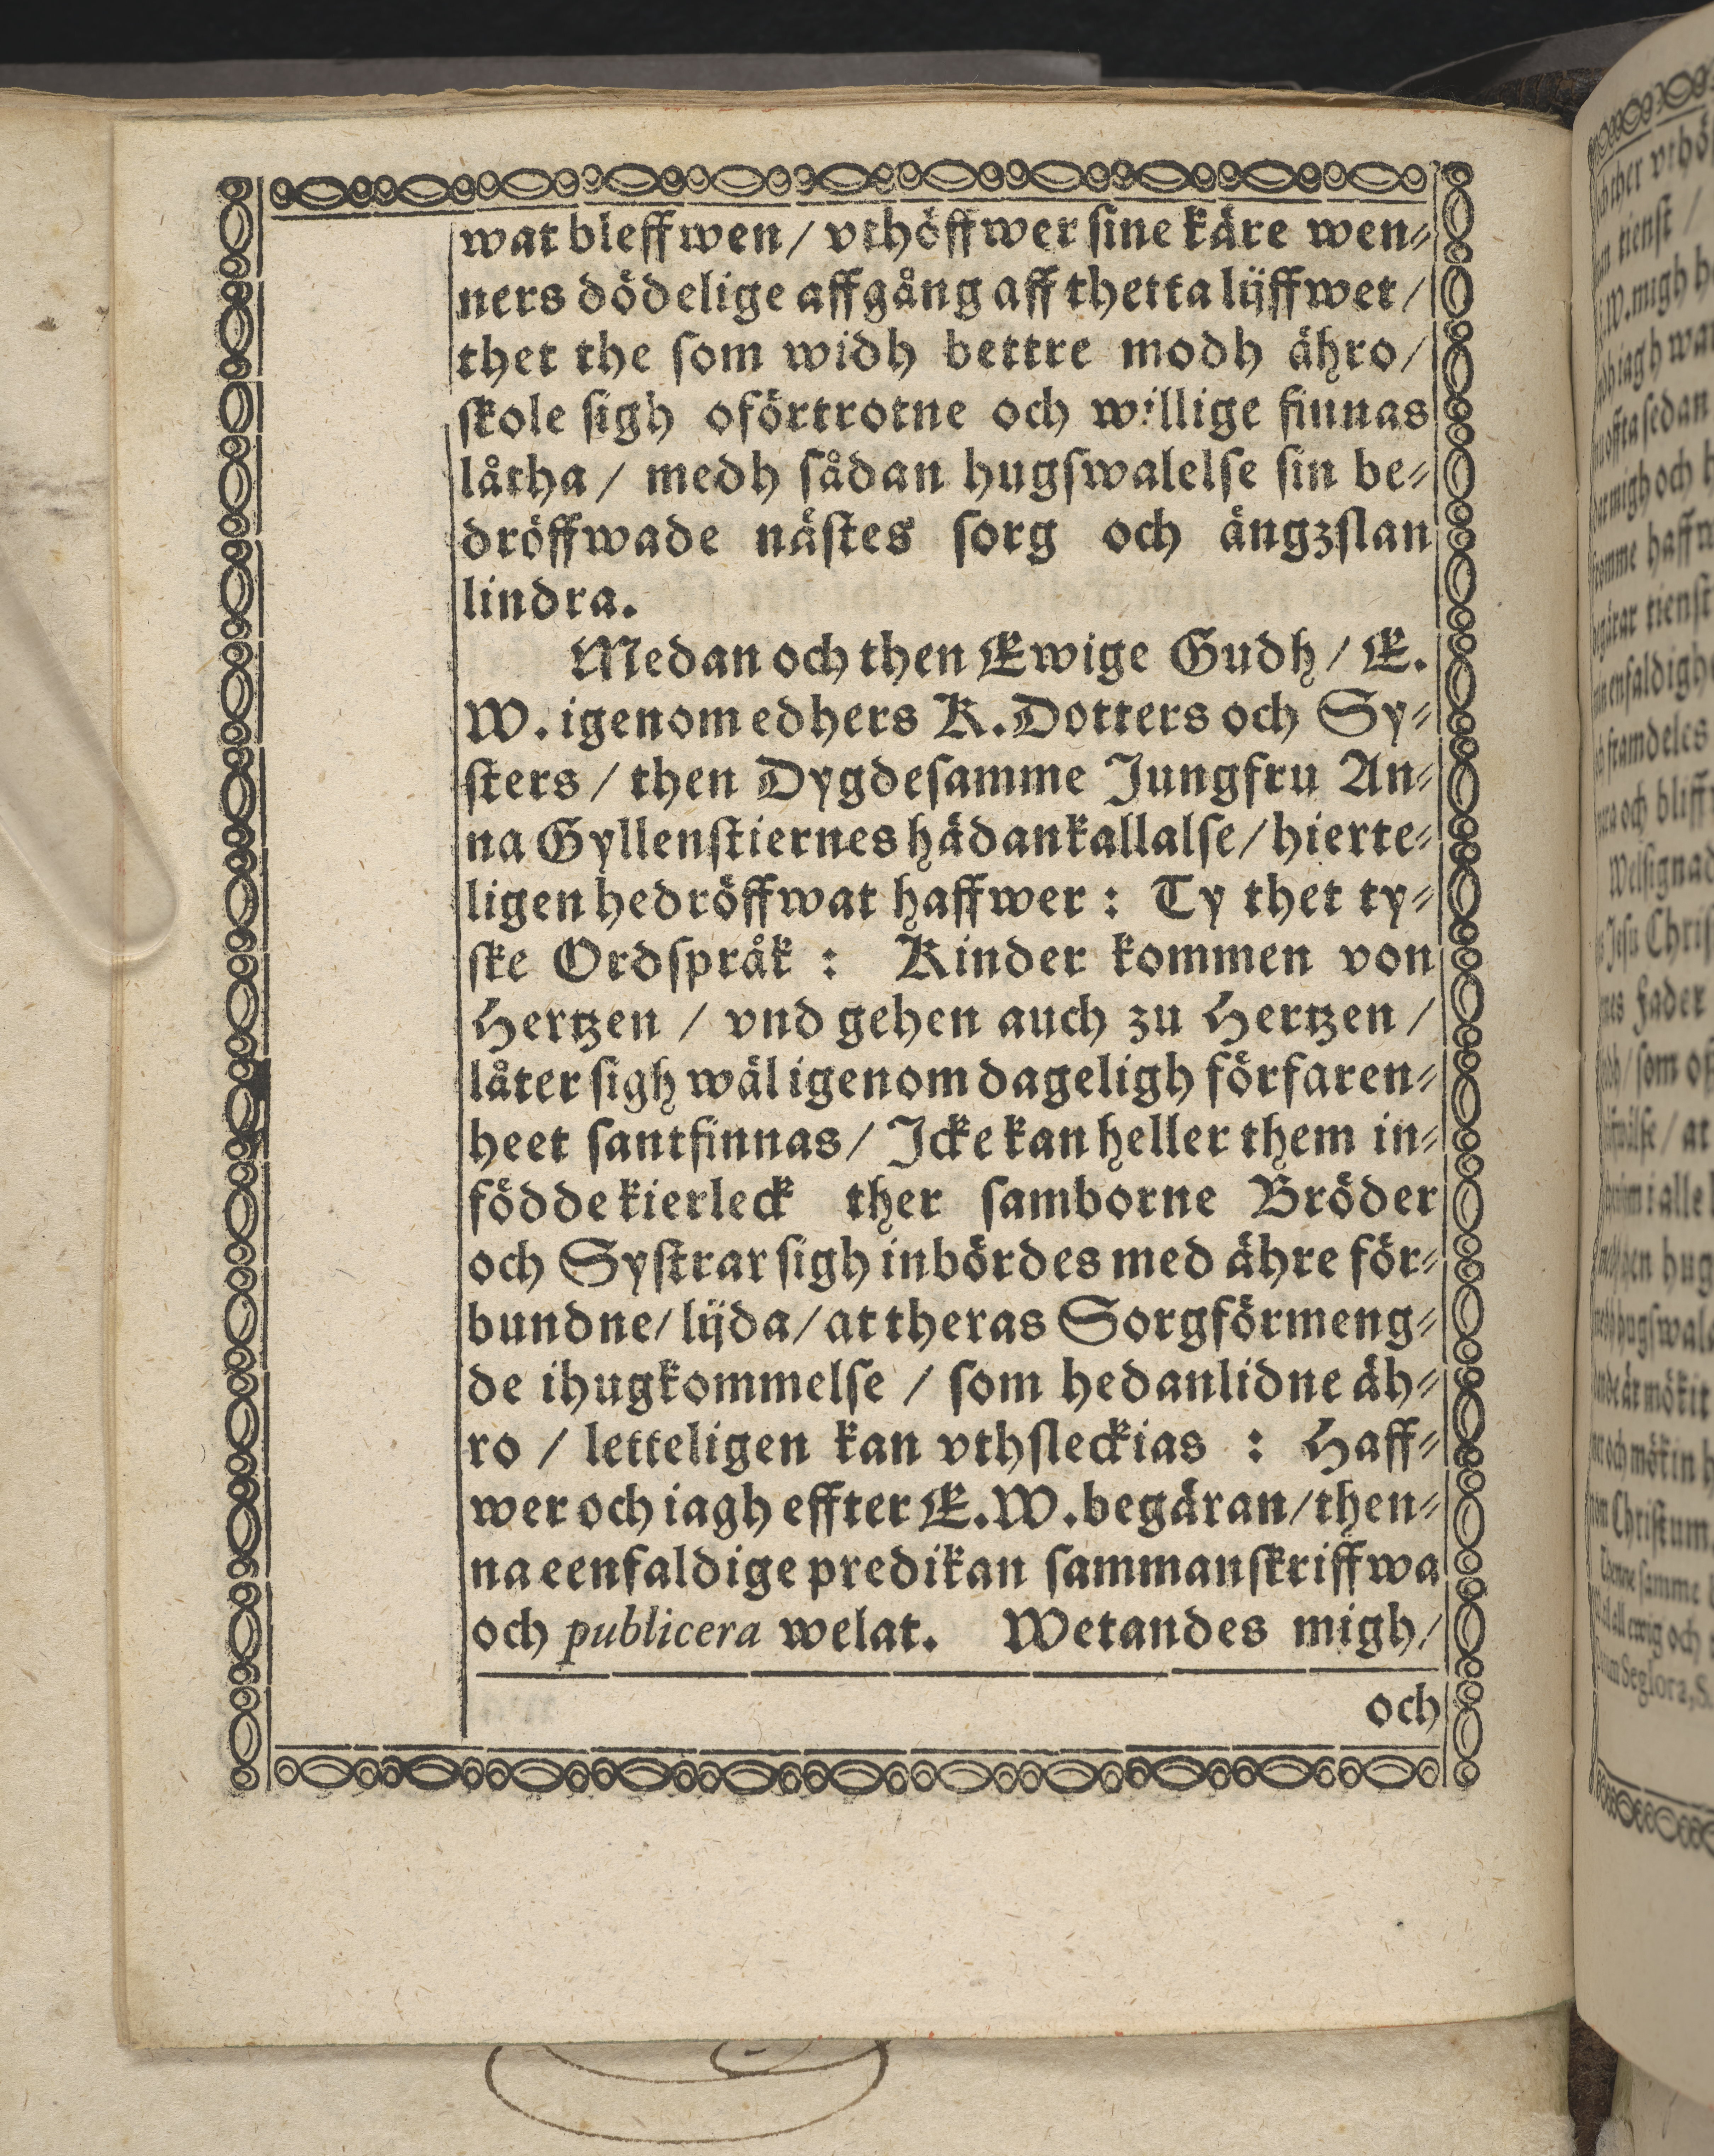 wat bleffwen / vthöffwer sine käre wen⸗
ners dödelige affgång aff thetta lijffwet /
thet the som widh bettre modh ähro /
skole sigh oförtrotne och willige finnas
låtha / medh sådan hugswalelse sin be⸗
dröffwade nästes sorg och ängzslan
lindra.
Medan och then Ewige Gudh / E.
W. igenom edhers K. Dotters och Sy⸗
sters / then Dygdesamme Jungfru An⸗
na Gyllenstiernes hädankallalse / hierte⸗
ligen hedröffwat haffwer : Ty thet ty⸗
ske Ordspråk : Kinder kommen von
Hertzen / vnd gehen auch zu Hertzen /
låter sigh wäl igenom dageligh förfaren⸗
heet santfinnas / Icke kan heller them in⸗
födde kierleck ther samborne Bröder
och Systrar sigh inbördes med ähre för⸗
bundne / lijda / at theras Sorgförmeng⸗
de ihugkommelse / som hedanlidne äh⸗
ro / letteligen kan vthsleckias : Haff⸗
wer och iagh effter E. W. begäran / then⸗
na eenfaldige predikan sammanskriffwa
och publicera welat. Wetandes migh /
och